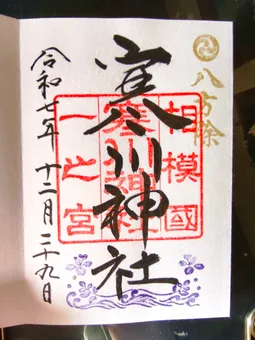 八方除
相模國
寒川神社
一之宮
寒川神社
令和七年十二月二十九日